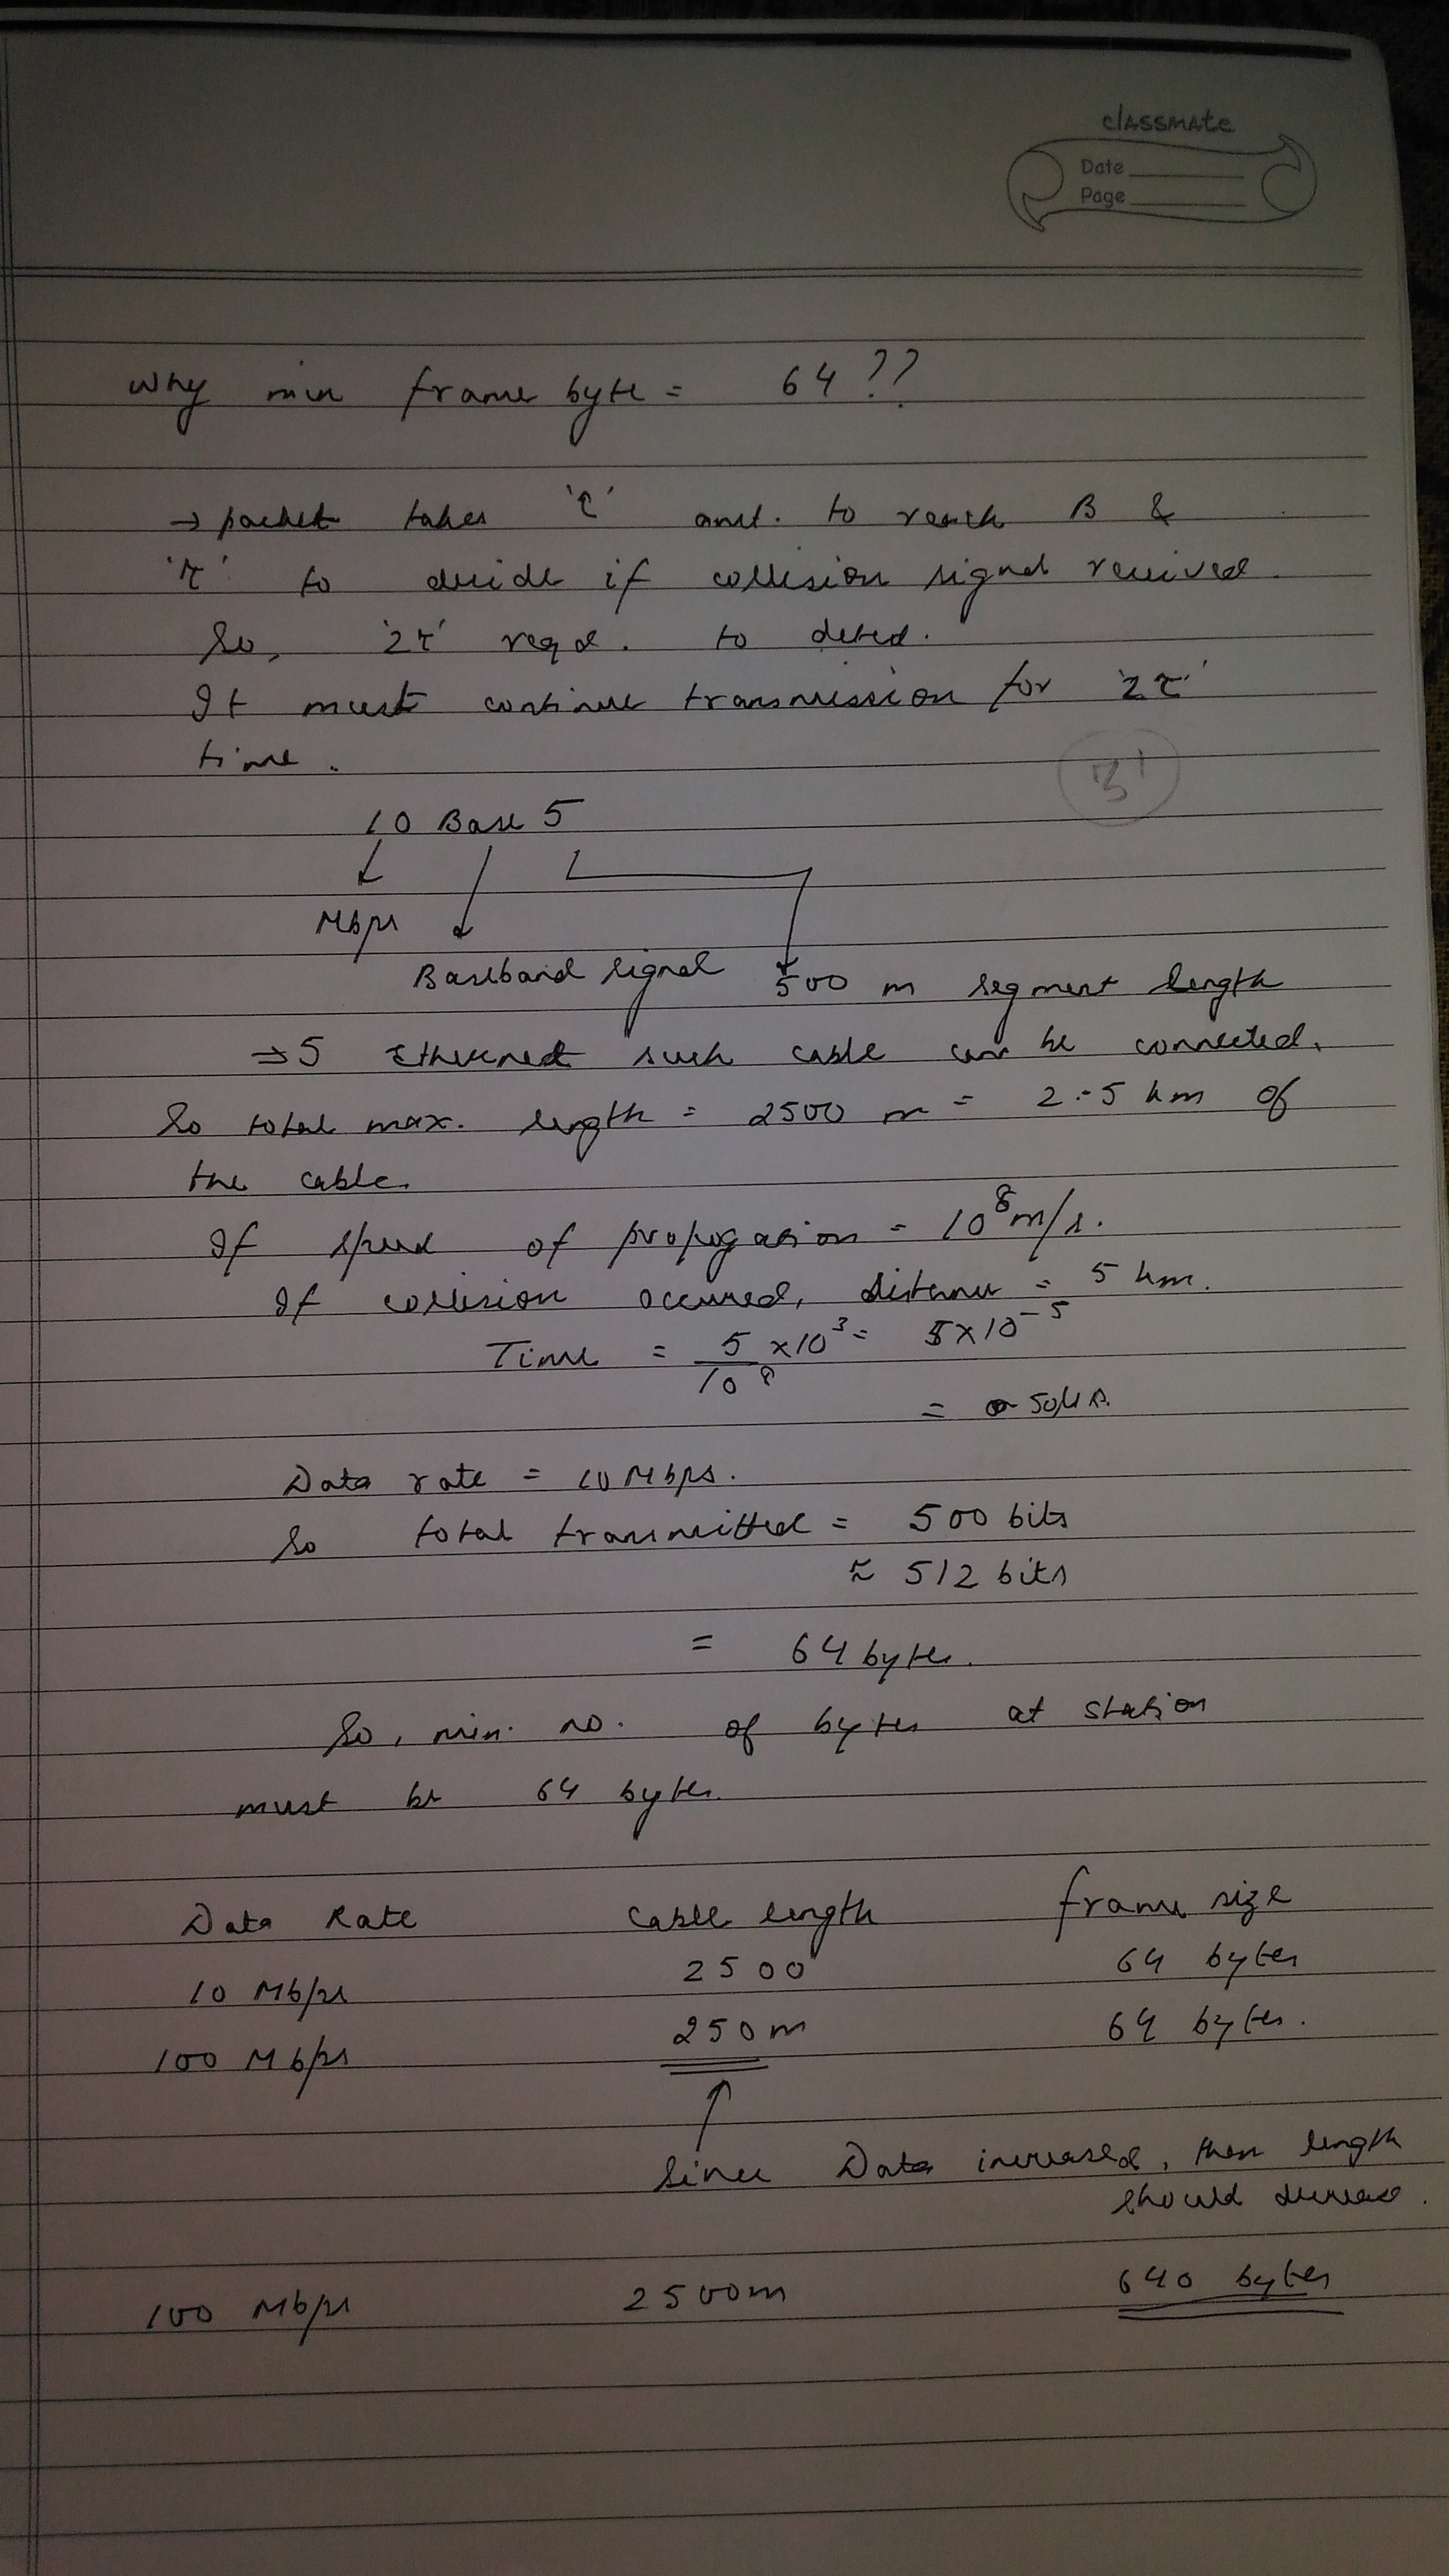 classmate
Date
Page
Why min frame byte = 64 ??
→ packet takes 'τ' amt. to reach B &
'τ' to decide if collision signal received.
So, '2τ' reqd. to detect.
It must continue transmission for '2τ'
time.
10 Base 5
Mbps
Baseband signal 500 m segment length
⇒ 5 Ethernet such cable can be connected.
So total max. length = 2500 m = 2.5 km of
the cable.
If speed of propogation = 10⁸ m/s.
If collision occurred, distance = 5 km.
Time = 5 × 10³ / 10⁸ = 5×10⁻⁵
= 50μs.
Data rate = 10 Mbps.
So total transmitted = 500 bits
≈ 512 bits
= 64 bytes.
So, min. no. of bytes at station
must be 64 bytes.
Data Rate Cable length frame size
10 Mbps 2500 64 bytes
100 Mbps 250 m 64 bytes.
↑
Since Data increased, then length
should decrease.
100 Mbps 2500m 640 bytes